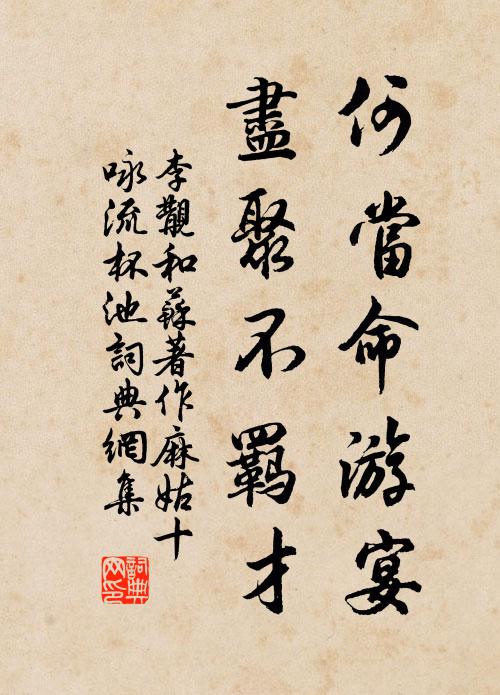 何當命游宴
盡聚不羈才
李覯和蘇著作麻姑十
咏流杯池詞典網集
詞典网印